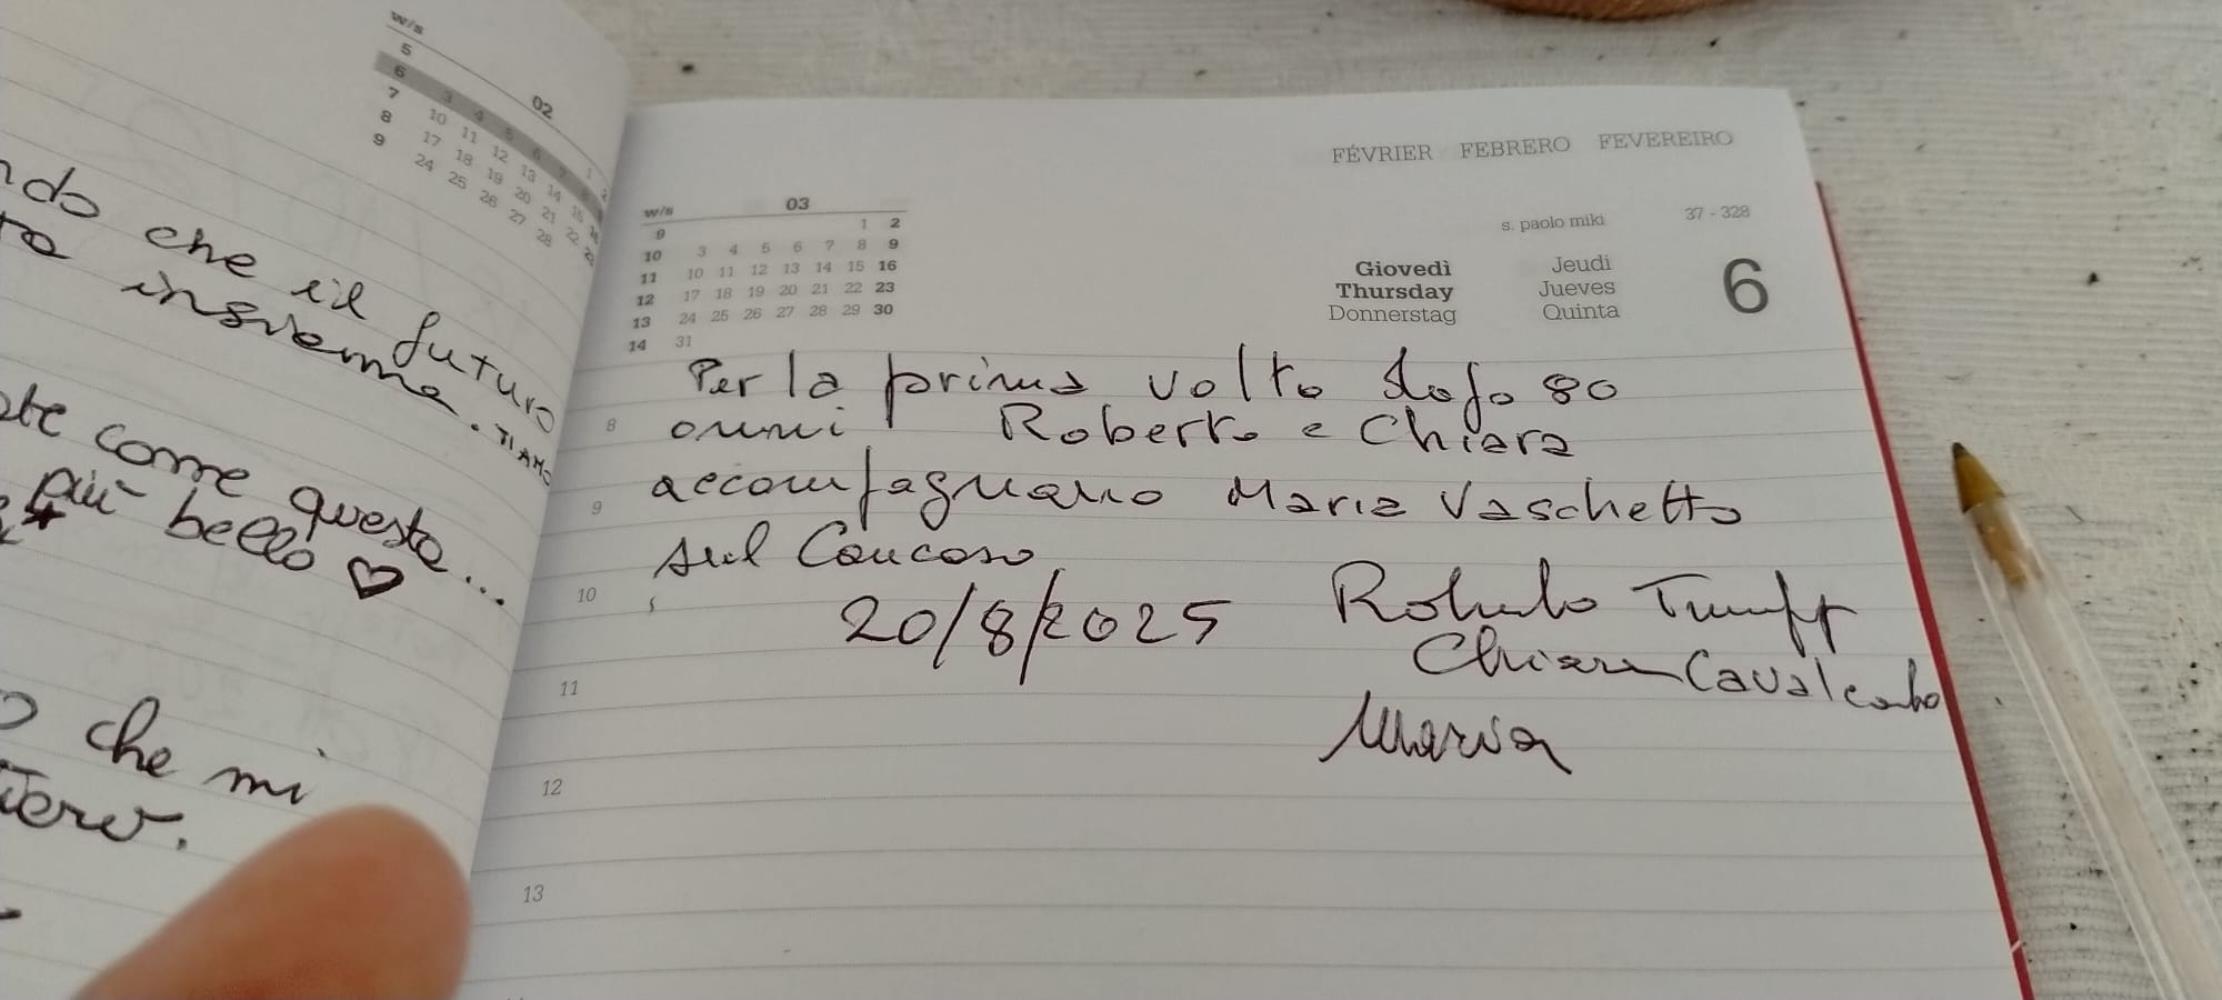 w/s 02
5 1 2
6 3 4 5 6 7 8
7 10 11 12 13 14 15 16
8 17 18 19 20 21 22
9 24 25 26 27 28
ndo che il futuro
insieme. TI AMO
come questo...
più bello ♡
che mi
w/s 03
9 1 2
10 3 4 5 6 7 8 9
11 10 11 12 13 14 15 16
12 17 18 19 20 21 22 23
13 24 25 26 27 28 29 30
14 31
FÉVRIER FEBRERO FEVEREIRO
s. paolo miki 37 - 328
Giovedì Jeudi
Thursday Jueves 6
Donnerstag Quinta
Per la prima volta dopo 80
8 anni Roberto e Chiara
9 accompagnano Maria Vaschetto
sul Coucoso
10 20/8/2025 Roberto
11 Chiara
Maria
12
13